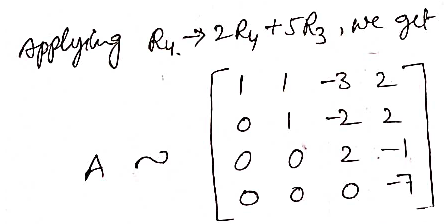 Applying R4. → 2R4 + 5R3, we get
A ~ [ 1 1 -3 2
0 1 -2 2
0 0 2 -1
0 0 0 -7 ]